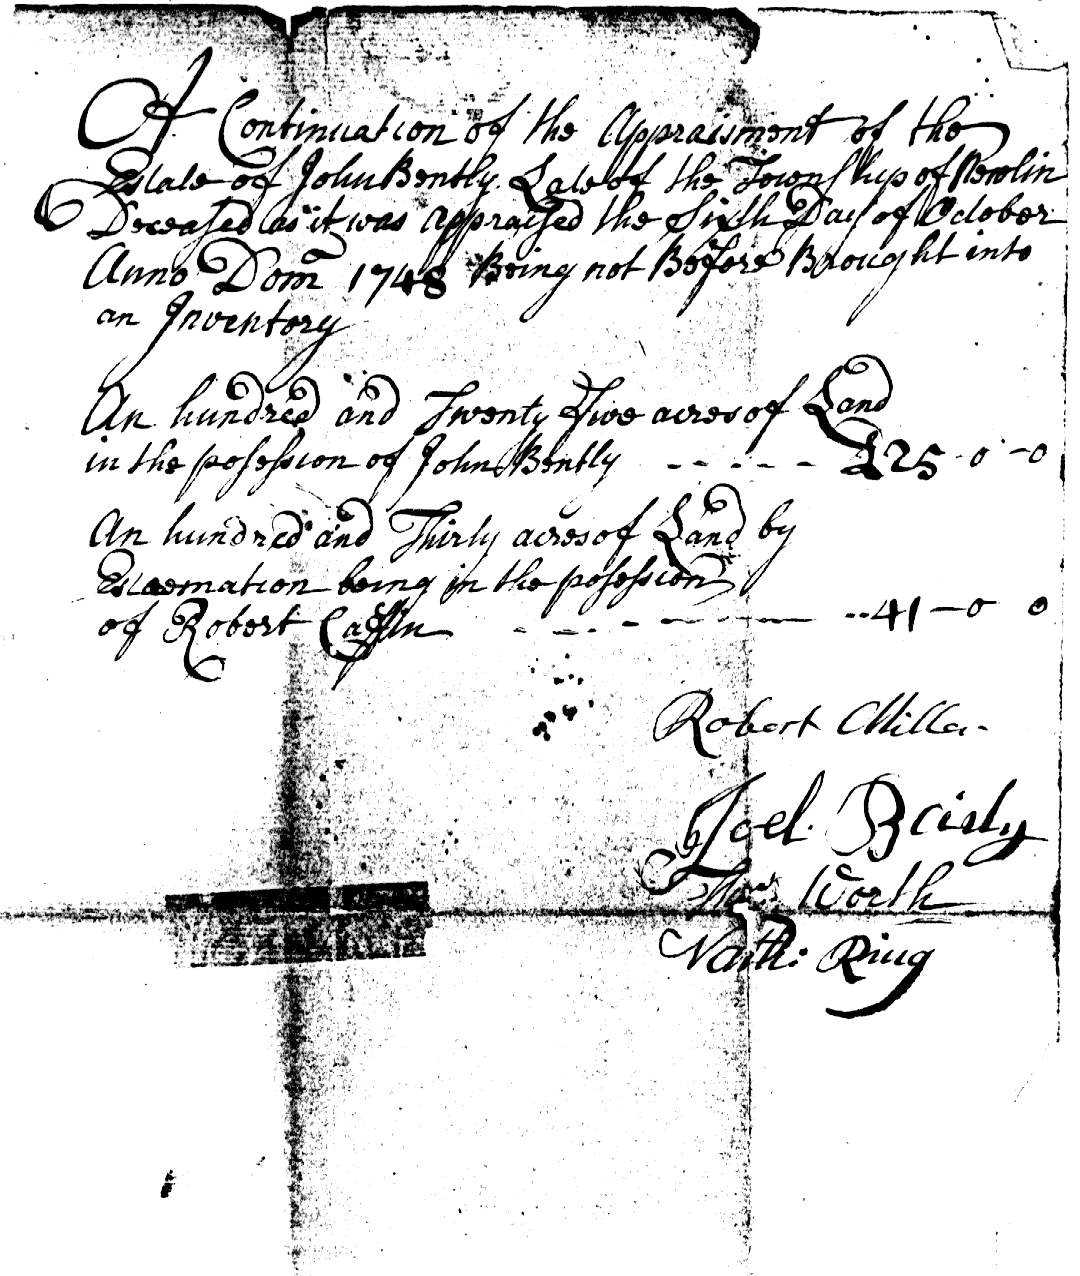 A Continuation of the Appraisment of the
Estate of John Bently Late of the Township of Newlin
Deceased as it was Appraised the Sixth Day of October
Anno Dom 1748 Being not Before Brought into
an Inventory
An hundred and Twenty Five acres of Land
in the posession of John Bently - - - - - £25-0-0
An hundred and Thirty acres of Land by
Esteemation being in the posession
of Robert - - - - - 41-0 0
Robert Miller
Joel Baily
Thos Worth
Nath: Ring